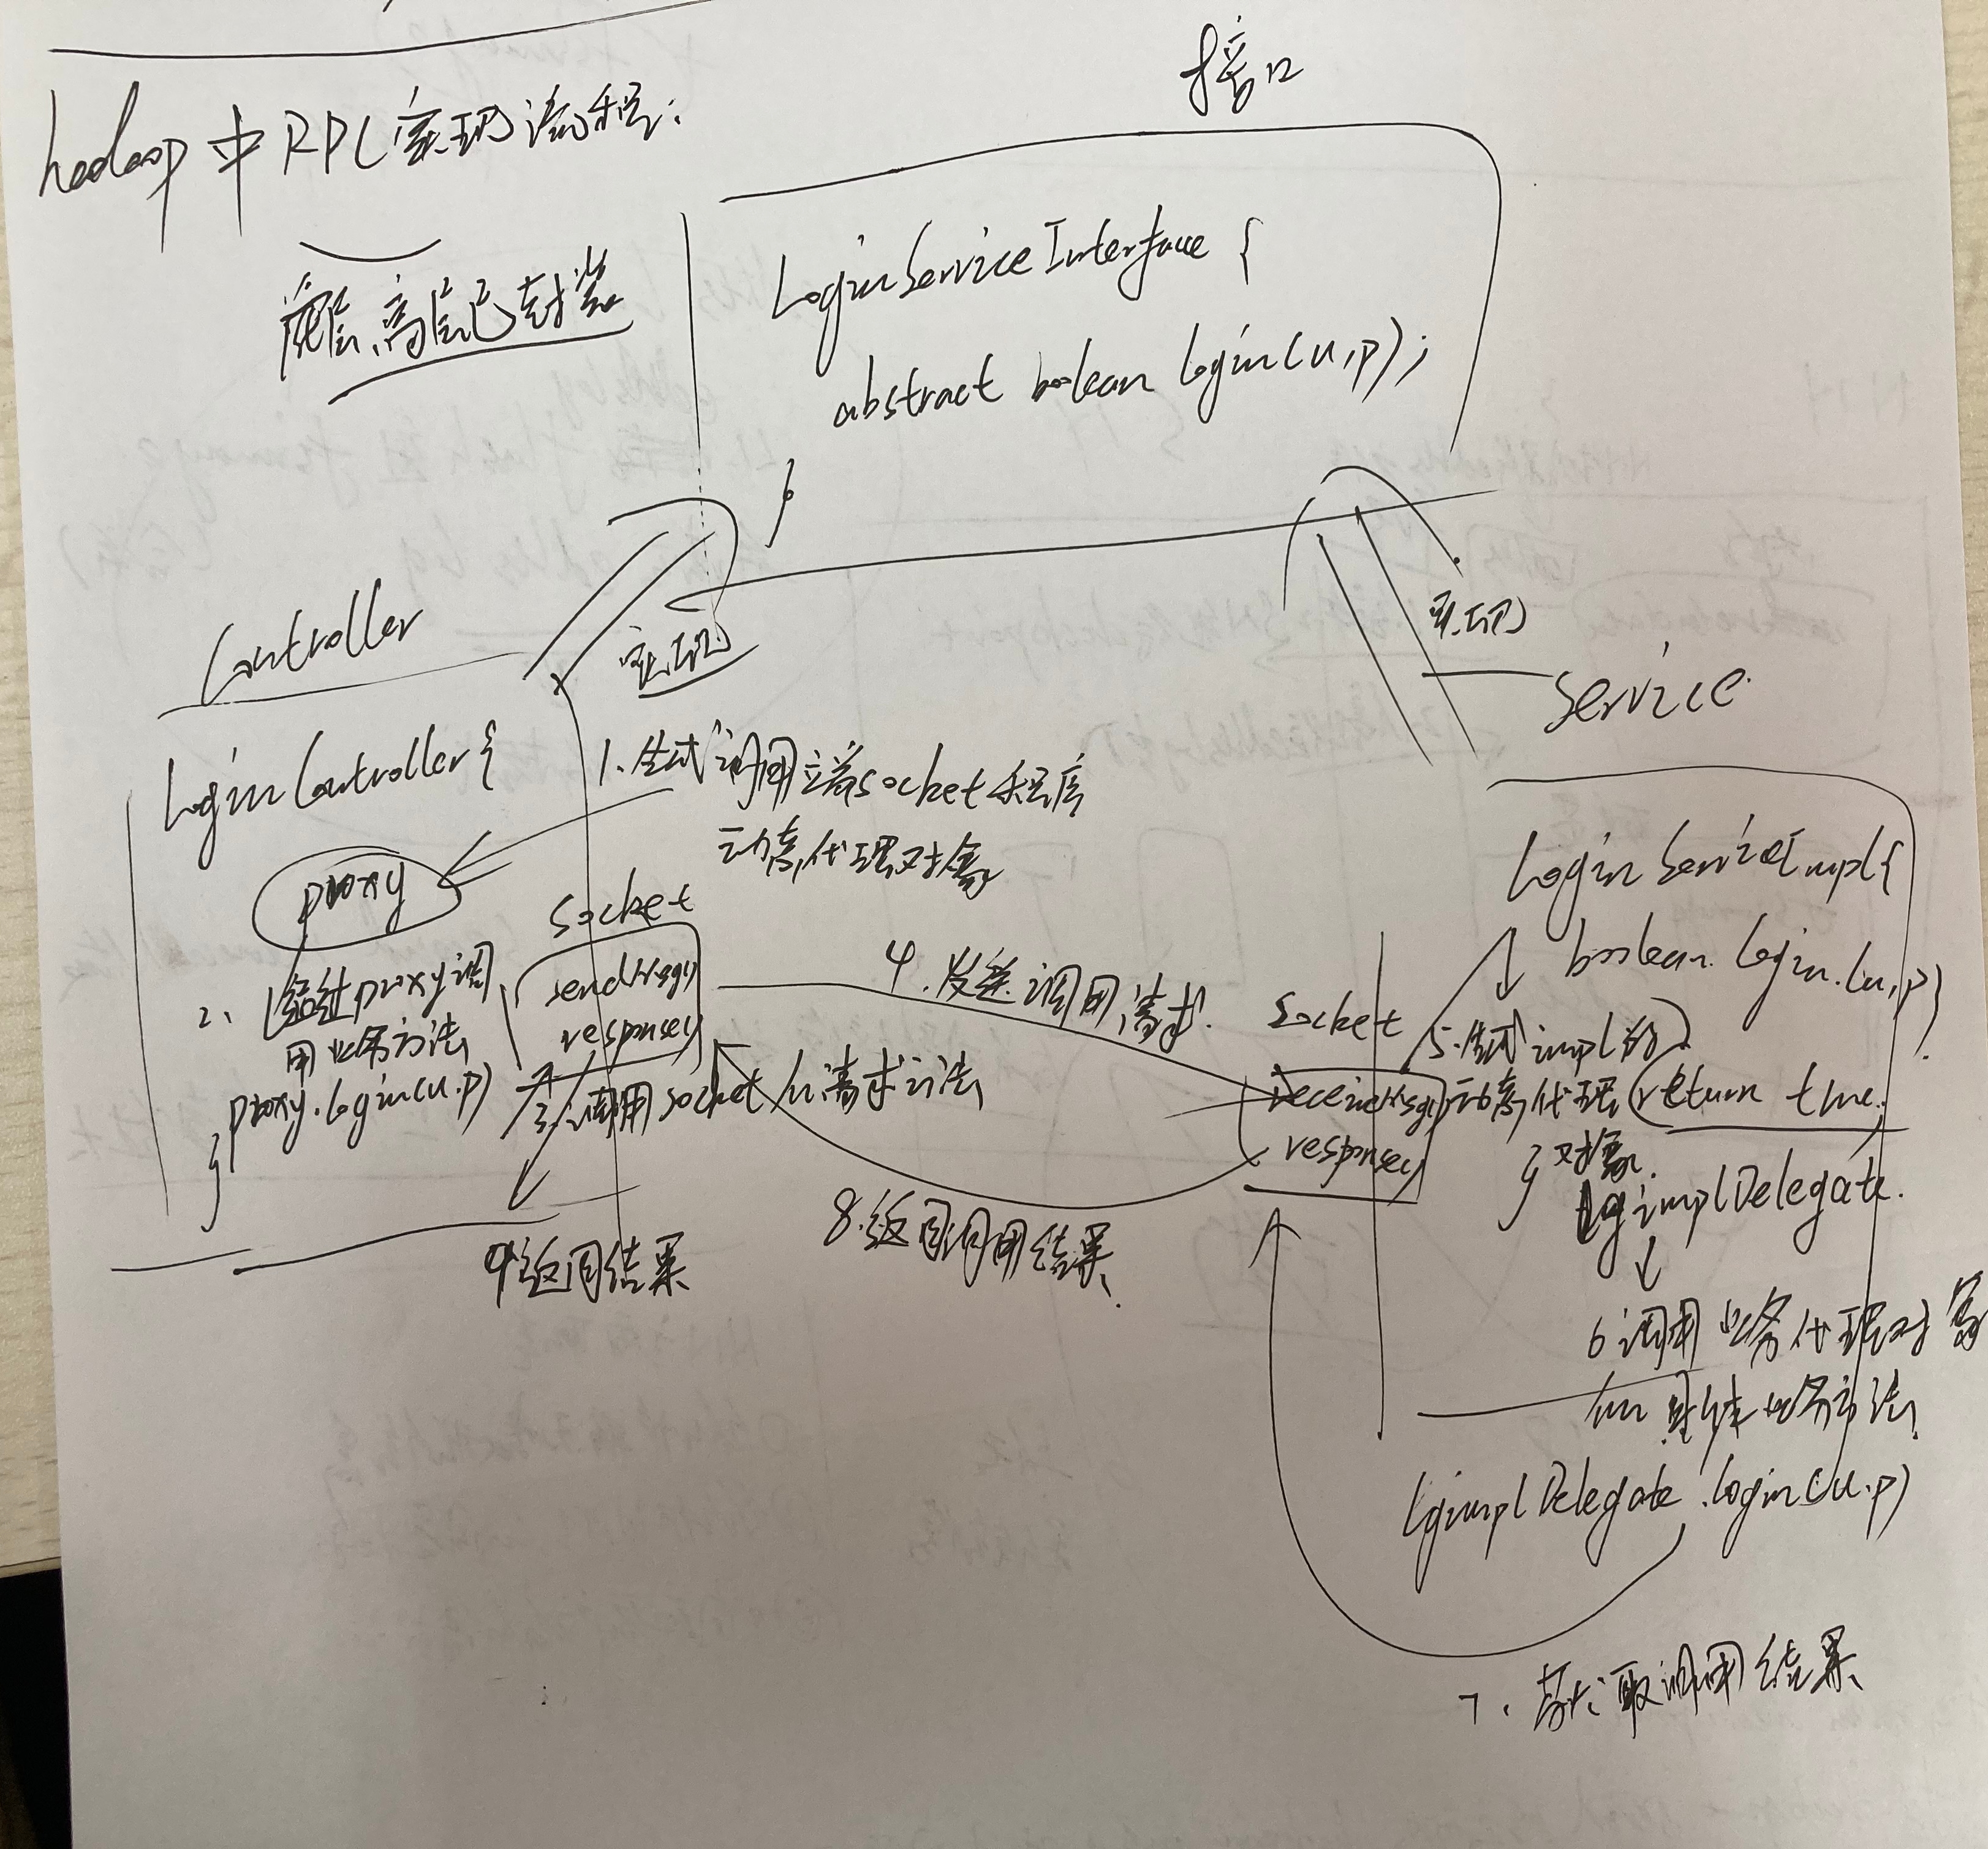 hadoop中RPC实现流程:
高层已封装
接口
LoginServiceInterface {
abstract boolean login(u,p);
}
实现
实现
Controller
LoginController{
proxy
1.生成调用端socket程序
动态代理对象
2、经过proxy调
用业务方法
proxy.login(u.p)
}
socket
sendMsg()
response()
3.调用socket的请求方法
4.发送调用请求.
Service
LoginServiceImpl{
boolean login(u,p)
return true.
}
socket
receiveMsg()
response()
5.生成impl的
动态代理
对象.
lgimplDelegate.
6调用业务代理对象
的具体业务方法
lgimplDelegate.login(u.p)
7、获取调用结果
8.返回调用结果
9返回结果